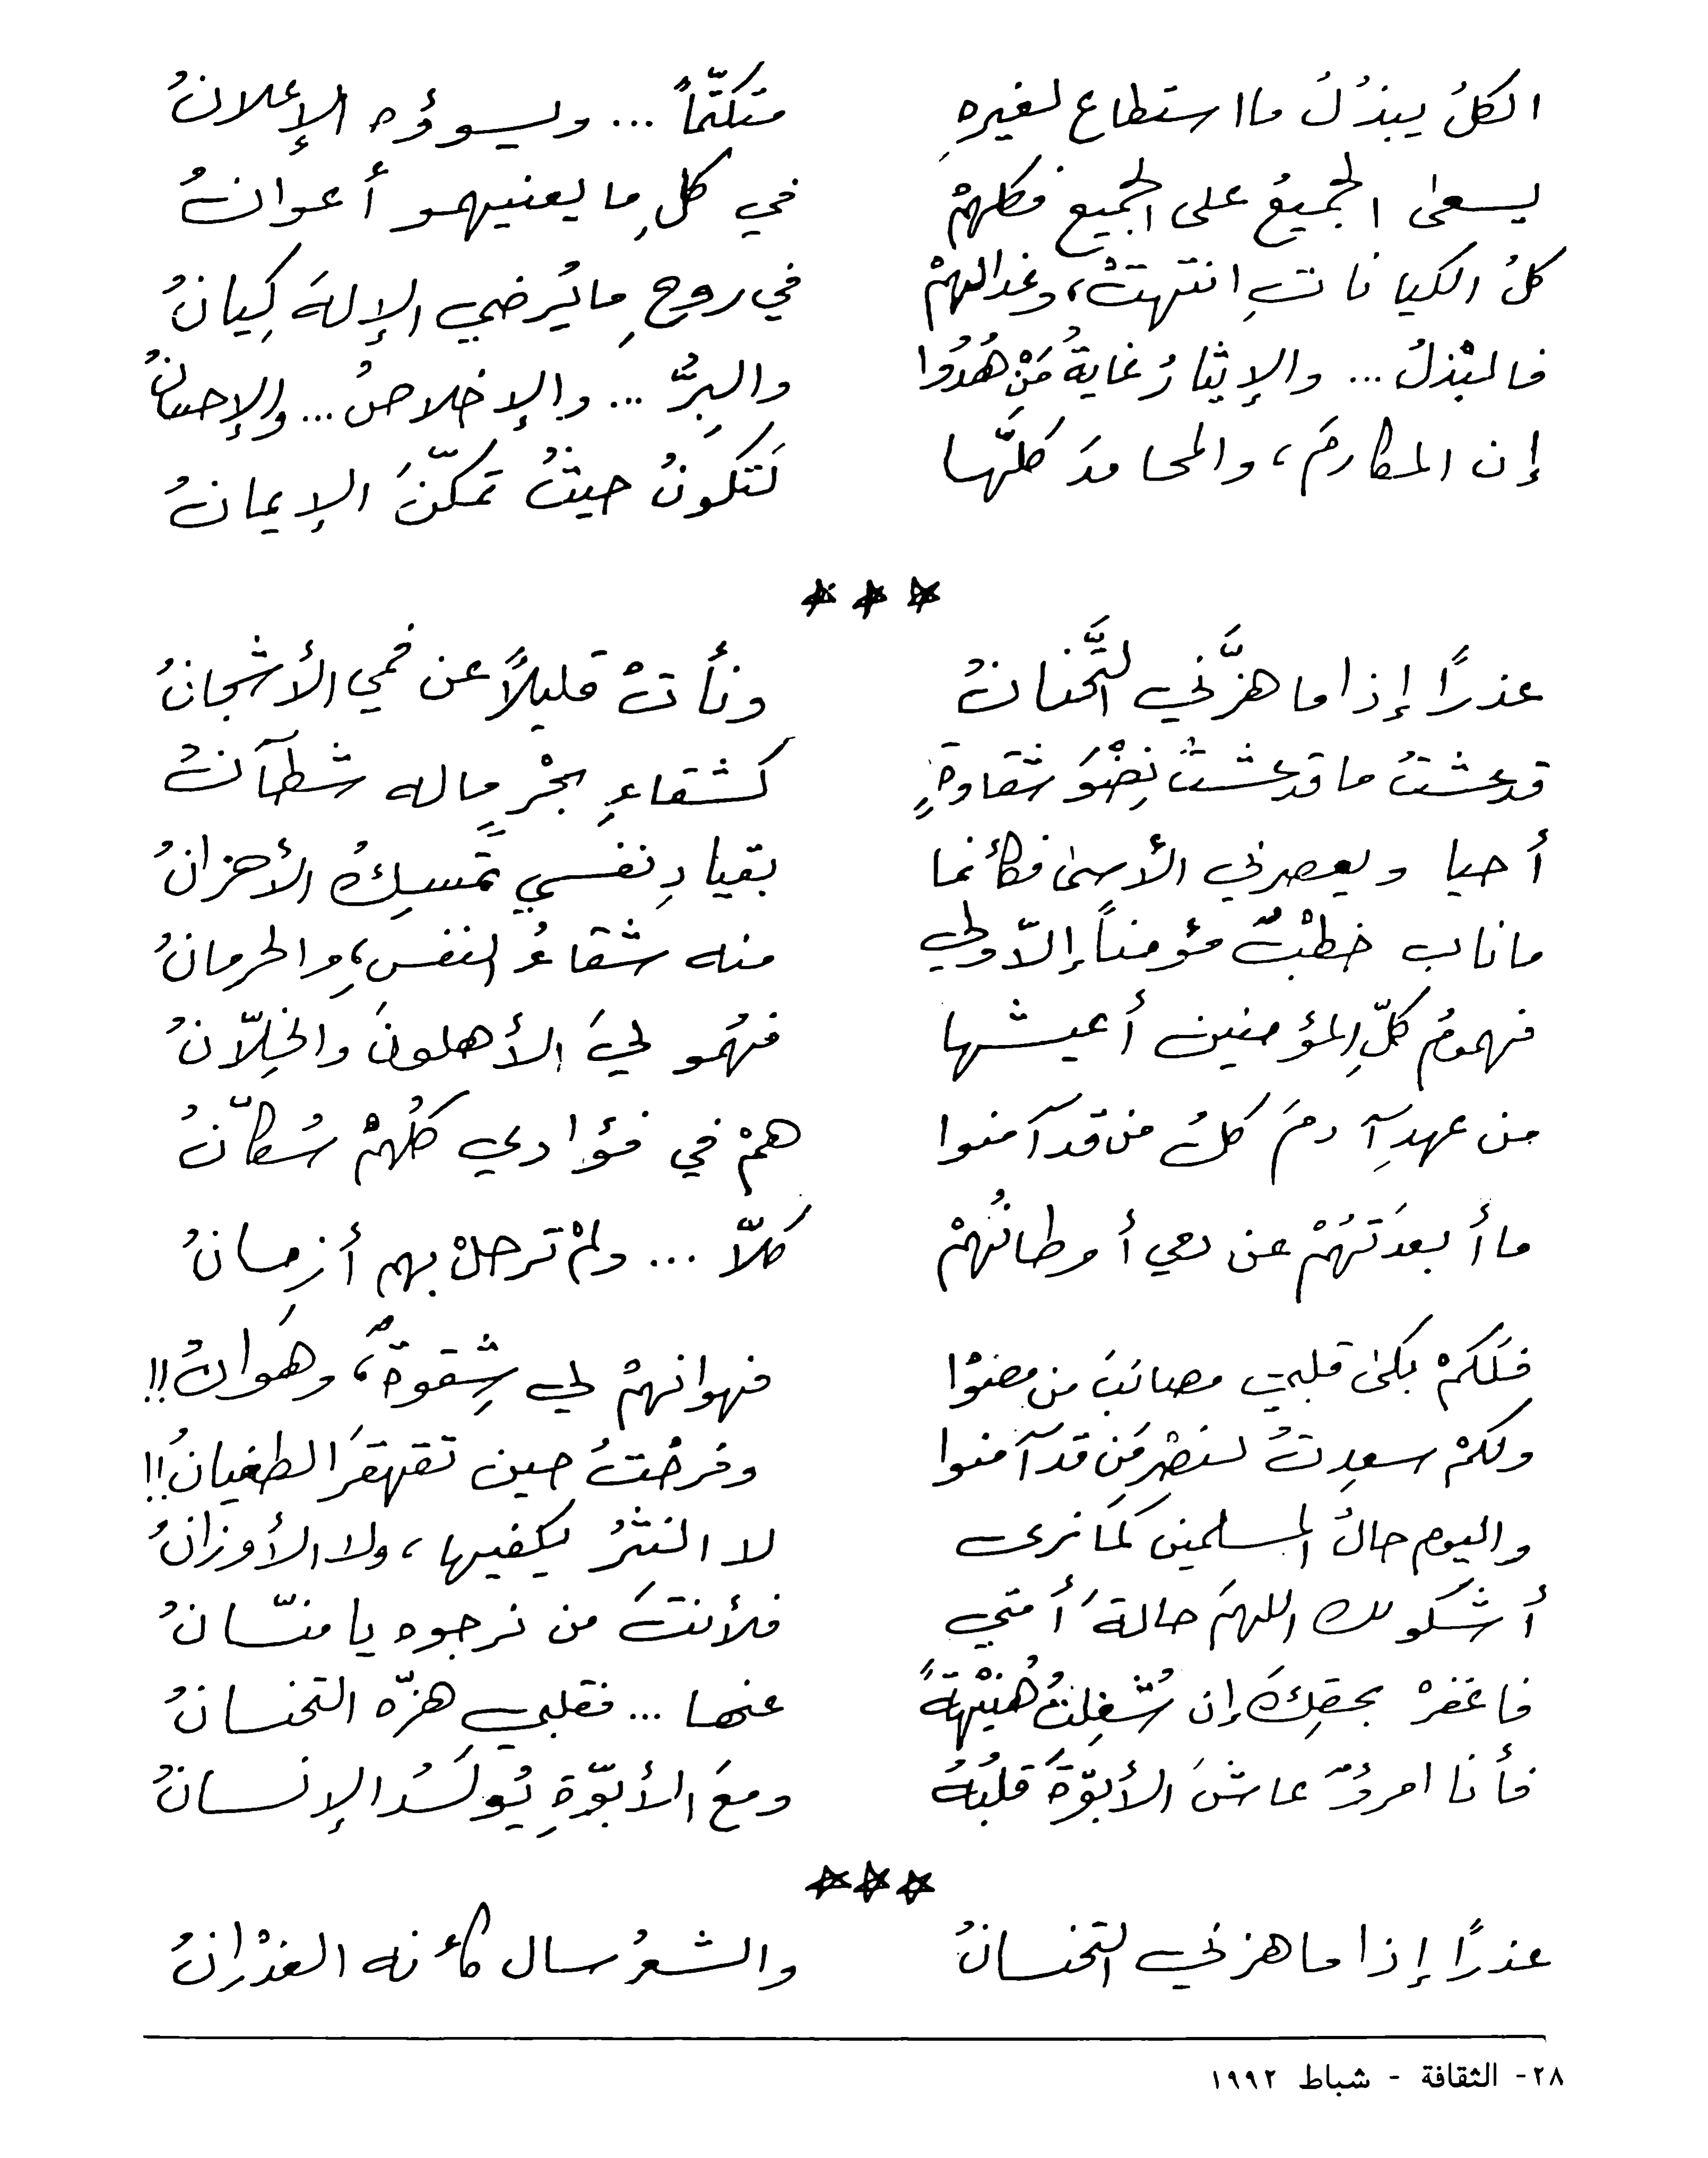 الكلُ يبذُلُ ما استطاع لغيرهِ متكتّماً ... ويسوؤه الإعلانُ
يسعى الجميعُ على الجميع فكلهمْ في كلِ ما يعنيهمو أعوانُ
كلُ الكياناتِ انتهتْ، وغدا لهمْ في روحِ ما يُرضي الإلهَ كِيانُ
فالبذْلُ ... والإيثارُ غايةُ مَنْ هُدُوا والبِرُّ ... والإخلاصُ ... والإحسانُ
إن المكارمَ، والمحامدَ كلَّها لَتكونُ حيثُ تمكّنَ الإيمانُ
***
عذرًا إذا ما هزَّني التَّحنانُ ونأتْ قليلاً عن فمي الأشجانُ
قد عشتُ ما قد عشتُ نِضْوَ شقاوةٍ كشقاءِ بحْرٍ ما له شطآنُ
أحيا ويعصرني الأسى فكأنما بقيادِ نفسي تَمسِكُ الأحزانُ
ما ناب خطْبٌ مؤمناً إلاّ ولي منه شقاءُ النفسِ، والحرمانُ
فهمومُ كلِّ المؤمنين أعيشها فهُمو ليَ الأهلونَ والخِلّانُ
من عهدِ آدمَ كلُ من قد آمنوا همْ في فؤادي كلُهمْ سُكّانُ
ما أبعدَتَهُمْ عن دمي أوطانُهمْ كلّا ... ولمْ ترحلْ بهم أزمانُ
فلَكمْ بكى قلبي مصائبَ من مضوْا فهوانهمْ لي شِقوةٌ، وهَوانُ!!
ولكمْ سعِدتُ لنصْرِ مَن قد آمنوا وفرحْتُ حين تقهقرَ الطغيانُ!!
واليوم حالُ المسلمين كمَا نرى لا النثرُ يكفيها، ولا الأوزانُ
أشكو لك اللهمَ حالةَ أمتي فلأنتَ من نرجوه يا منّانُ
فاغفرْ بحقِكَ إن شُغِلتُ هُنيْهةً عنها ... فقلبي هزّه التحنانُ
فأنا امرؤٌ عاشَ الأبوّةَ قلبُهُ ومعَ الأبوّةِ يُولَدُ الإنسانُ
***
عذرًا إذا ما هزني التحنانُ والشعرُ سال كأنه الغدْرانُ
٢٨- الثقافة - شباط ١٩٩٢